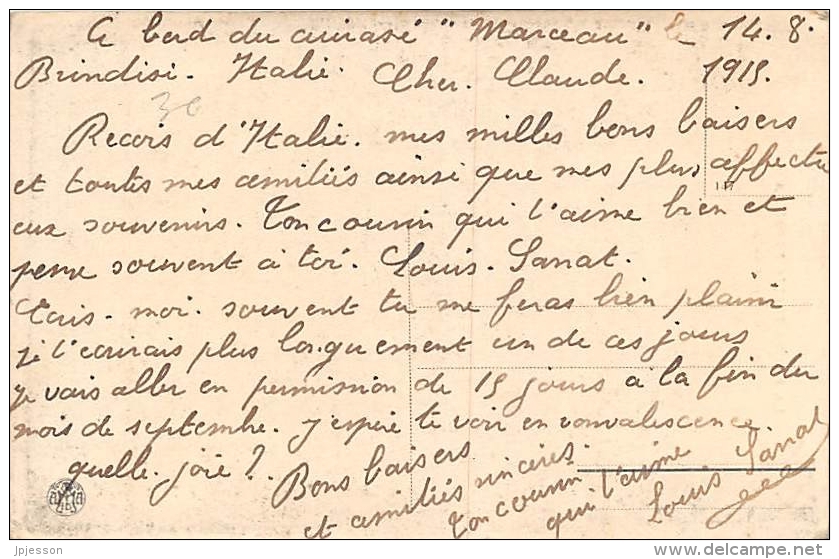 A bord du cuirasé "Marceau" le 14. 8.
Brindisi. Italie. Cher. Claude. 1915.
Recois d'Italie. mes milles bons baisers
et toutes mes amitiés ainsi que mes plus affectu
eux souvenirs. Ton cousin qui t'aime bien et
pense souvent à toi. Louis. Sanat.
Ecris. moi. souvent tu me feras bien plaisir
je t'ecrirais plus longuement un de ces jours
je vais aller en permission de 15 jours à la fin du
mois de septembre. j'espère te voir en convalescence.
quelle. joie?. Bons baisers
et amitiés sincères.
Ton cousin
qui t'aime
Louis Sanat
jpjesson
delcampe.net